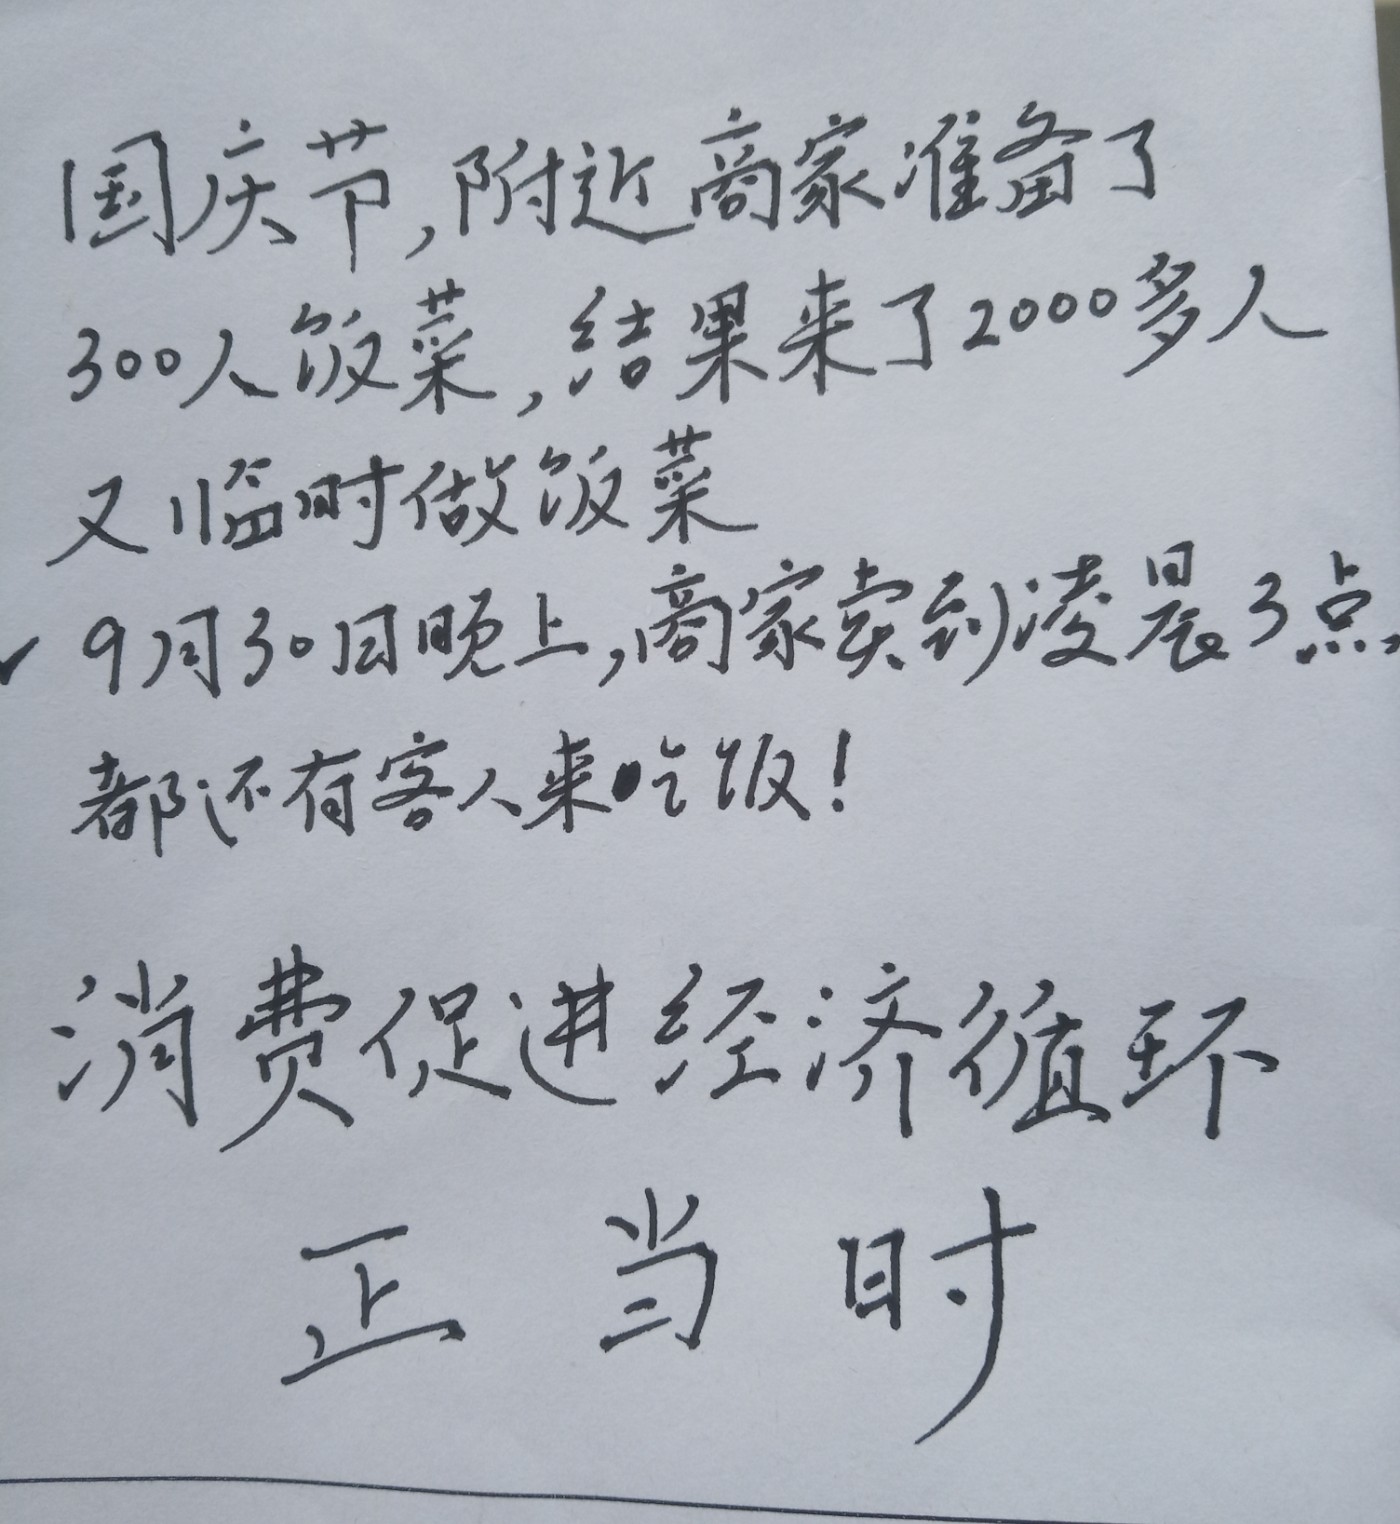 国庆节,附近商家准备了
300人饭菜,结果来了2000多人
又临时做饭菜
✓ 9月30日晚上,商家卖到凌晨3点,
都还有客人来吃饭!
消费促进经济循环
正当时